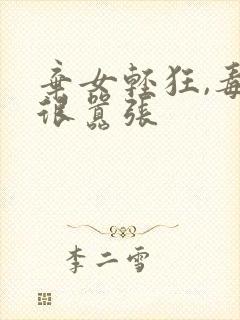 棄女輕狂,毒
很囂張
李二雪